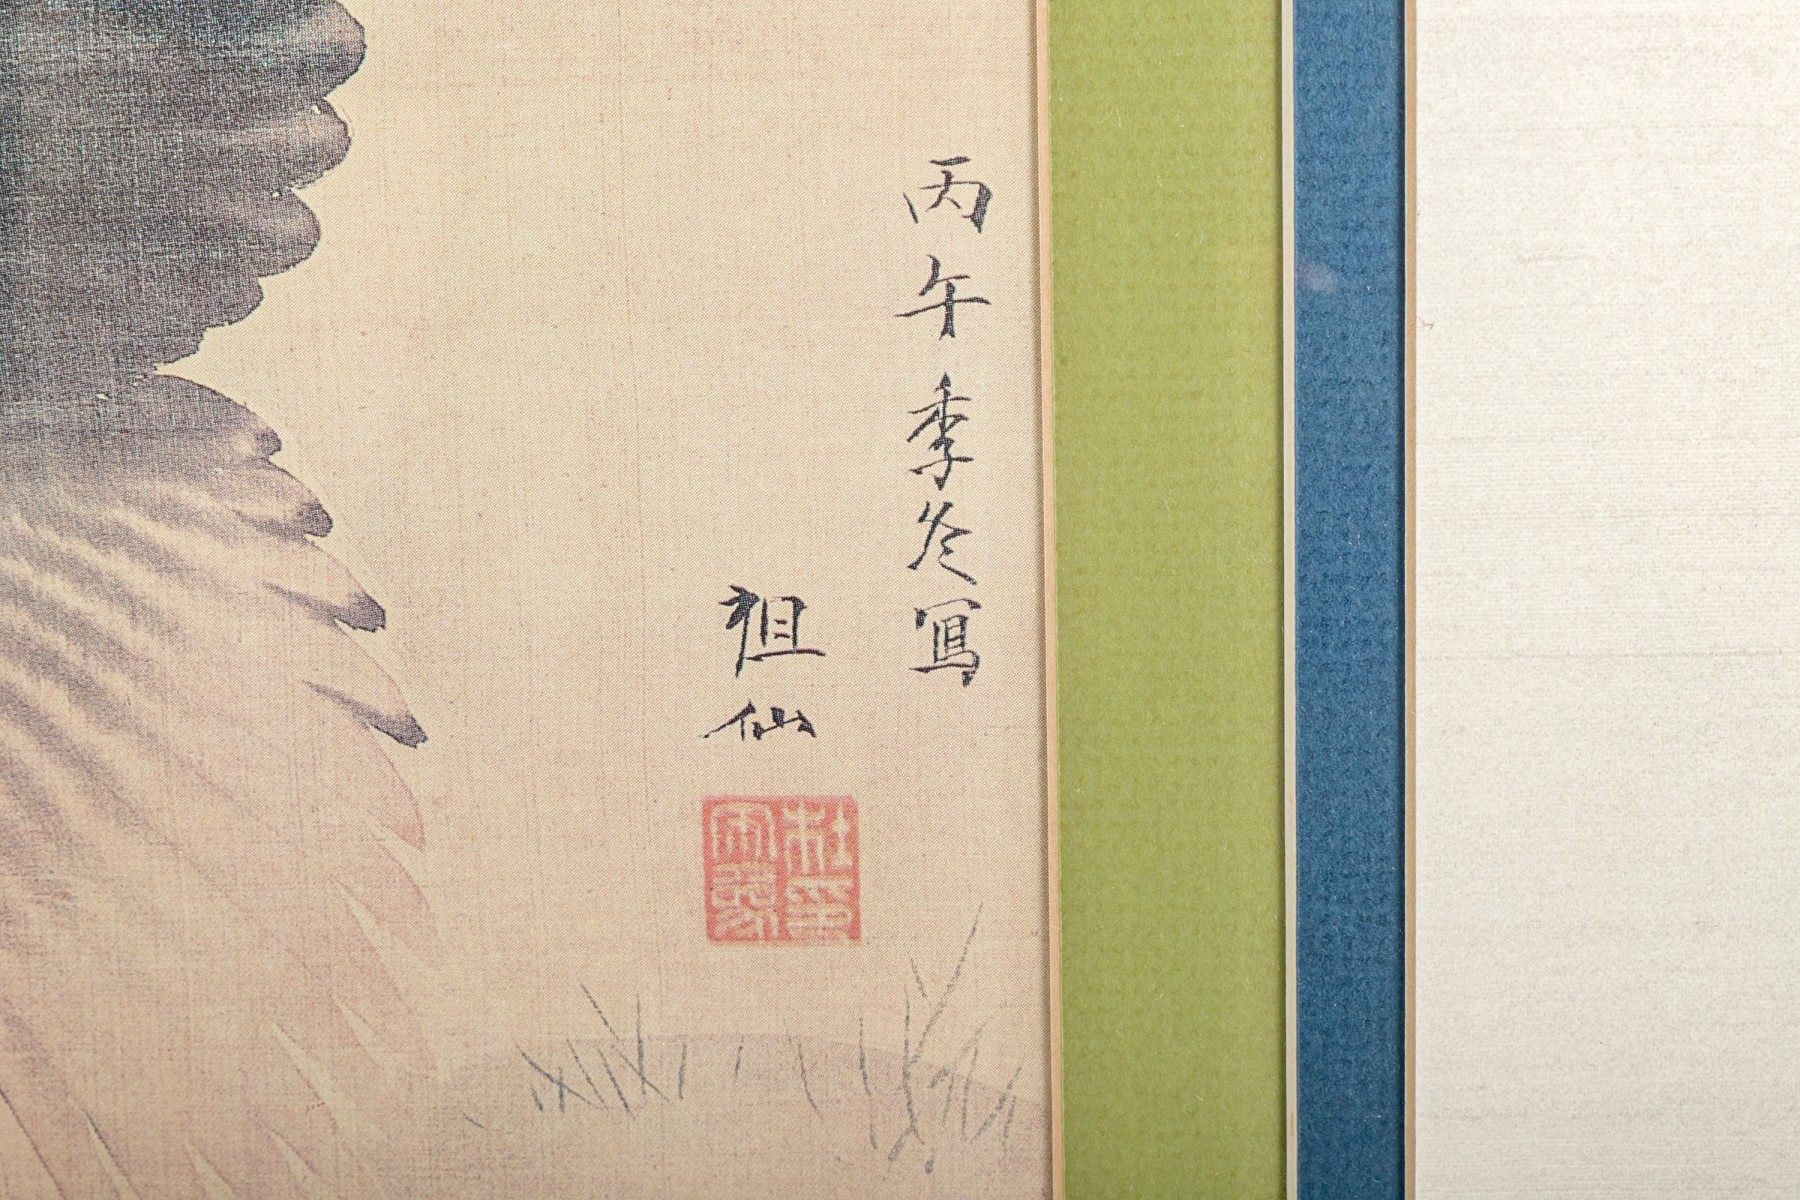 丙午季冬寫
狙仙